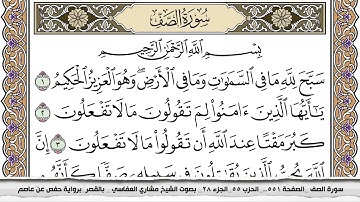 سُورَةُ الصَّفِّ
بِسْمِ اللَّهِ الرَّحْمَٰنِ الرَّحِيمِ
سَبَّحَ لِلَّهِ مَا فِي السَّمَاوَاتِ وَمَا فِي الْأَرْضِ ۖ وَهُوَ الْعَزِيزُ الْحَكِيمُ ١
يَا أَيُّهَا الَّذِينَ آمَنُوا لِمَ تَقُولُونَ مَا لَا تَفْعَلُونَ ٢
كَبُرَ مَقْتًا عِندَ اللَّهِ أَن تَقُولُوا مَا لَا تَفْعَلُونَ ٣ إِنَّ
اللَّهَ يُحِبُّ الَّذِينَ يُقَاتِلُونَ فِي سَبِيلِهِ صَفًّا كَأَنَّهُم
سورة الصف الصفحة ٥٥١.. الحزب ٥٥ الجزء ٢٨ بصوت الشيخ مشاري العفاسي بالقصر برواية حفص عن عاصم